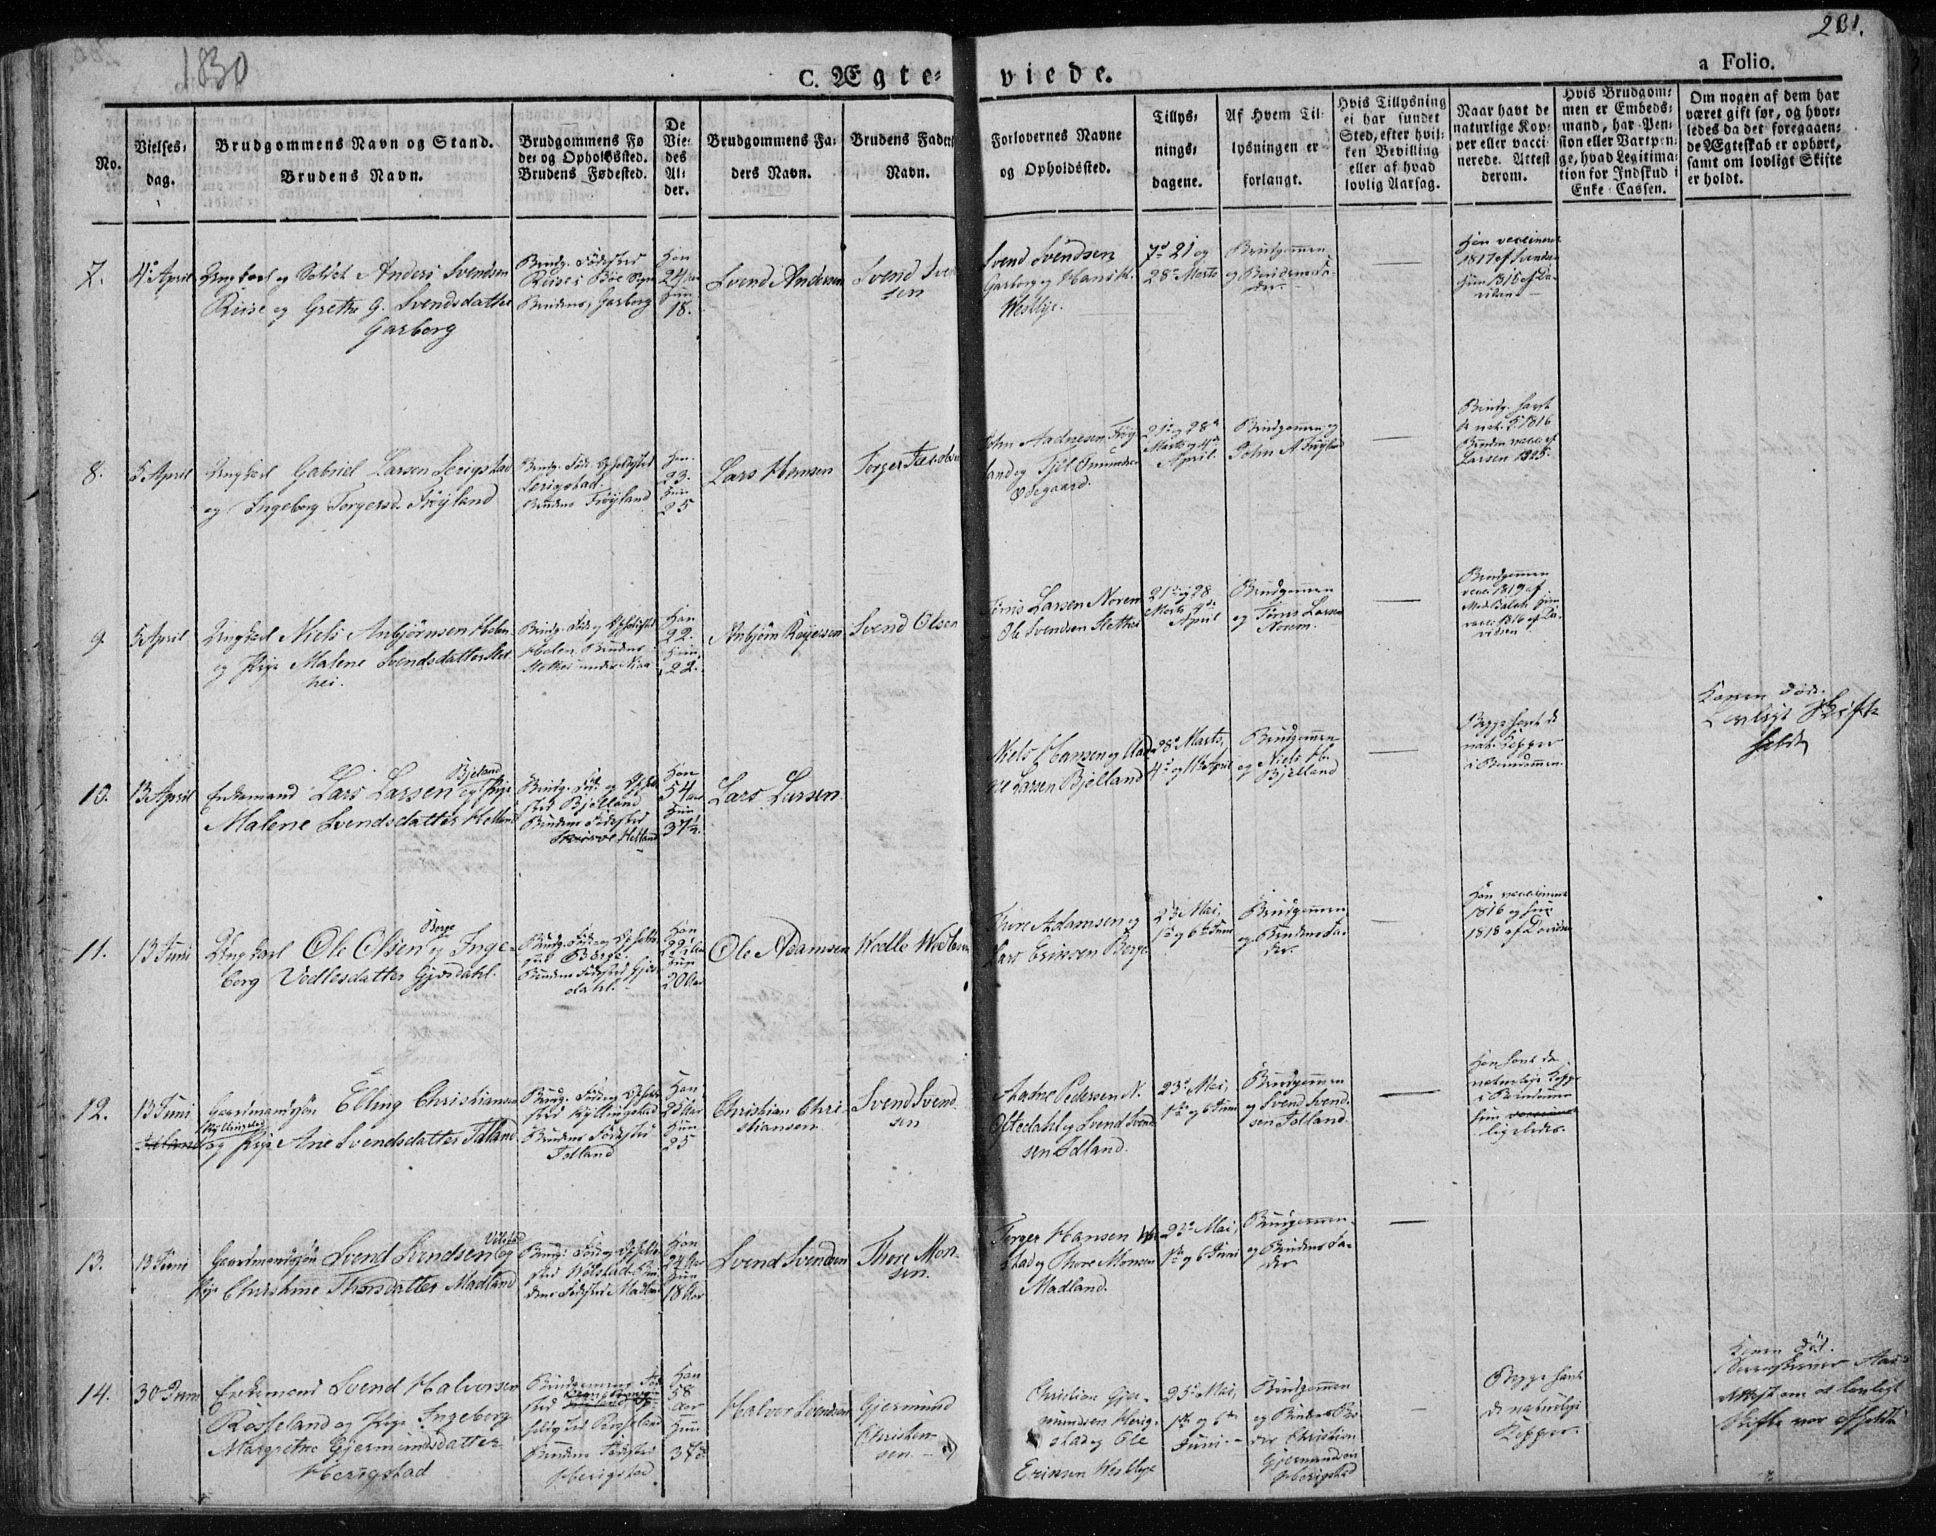 1830
C. Ægte-
viede.
a Folio.
201.
No.
Vielses-
dag.
Brudgommens Navn og Stand.
Brudens Navn.
Brudgommens Fø
de- og Opholdssted.
Brudens Fødested.
De
Vie-
des
Al-
der.
Brudgommens Fa-
ders Navn.
Brudens Faders
Navn.
Forlovernes Navne
og Opholdsted.
Tillys-
nings-
dagene.
Af Hvem Til-
lysningen er
forlangt.
Hvis Tillysning
ei har fundet
Sted, efter hvil-
ken Bevilling
eller af hvad
lovlig Aarsag.
Naar havt de
naturlige Kop-
per eller vacci-
nerede. Attest
derom.
Hvis Brudgom-
men er Embeds-
mand, har Pen-
sion eller Vartpen-
ge, hvad Legitima-
tion for Indskud i
Enke-Cassen.
Om nogen af dem har
været gift før, og hvor-
ledes da det foregaaen-
de Ægteskab er ophørt,
samt om lovligt Skifte
er holdt.
7.
4de April
Ungkarl og Soldat Anders Svendsen
Reise og Grethe G. Svendsdatter
Garborg
Brudg. Fødested
Brudens Garborg
Han
24 aar
Hun
18.
Svend Andersen
Svend Svend
sen
Svend Svendsen
Garborg og Hans H.
Westlye.
7de 21 og
28de Marts
Brudgommen
og Brudens Fa-
der.
Han vaccineret
1817 af
Hun 1816 af Da-
vidsen
8.
5 April
Ungkarl Gabriel Larsen Serigstad
og Ingeborg Torgersd. Frøyland
Brudg. Føde- og Opholdsted
Serigstad.
Brudens Frøyland
Han
23.
Hun
25
Lars Hansen
Torger Jacobsen
John Aadnesen Frøy-
land og Fjel Omundsen
Ødegaard.
21de og 28de
Marts og 4de
April.
Brudgommen og
John A Frøyland
Brudg. havt
de nat. K. 1816
Bruden vacc. af
Larsen 1825.
9.
5 April
Ungkarl Niels Anbjørnsen Holen
og Pige Malene Svendsdatter Stet-
hei.
Brudg. Føde- og Opholdsted
Holen. Brudens
Han
22.
Hun
22.
Anbjørn Reiersen
Svend Olsen
Tønis Larsen Norem
Ole Svendsen Stethei
21de og 28
Marts 4de
April
Brudgommen
og Tønis Larsen
Norem.
Brudgommen
vacc. 1819 af
Mad. Balch hun
vacc. 1816 af Da-
vidsen
10.
13 April
Enkemand Lars Larsen Bjeland og Pige
Malene Svendsdatter Helland
Brudg. Fød. og Ophold-
sted Bjelland
Brudens Fødested
Helland
Han
54 aar
Hun
37½.
Lars Larsen.
Niels Hansen og Aad-
ne Larsen Bjelland
28de Marts,
4de og 11te April
Brudgommen
og Niels H.
Bjelland
Begge havt de
nat. Kopper
i Barndommen.
Konen død.
Lovligt Skifte
holdt
11.
13 Juni
Ungkarl Ole Olsen Berge og Inge-
borg Vedlesdatter Gjesdahl.
Brudg. Føde- og Opholds-
sted Berge.
Brudens Fødested Gjes-
dahl.
Han
22 Aar
Hun
20 Aar
Ole Adamsen
Wedle Wedlesen
Thore Adamsen og
Lars Ericsen Berge
23de Mai,
1ste og 6te Juni
Brudgommen
og Brudens Fa-
der.
Han vaccineret
1816 og hun
1818 af Davidsen
12.
13 Juni
Gaardmandssøn Elling Christiansen
Kyllingstad
og Pige Ane Svendsdatter Tolland.
Brudg. Føde og Opholds-
sted Kyllingstad
Brudens Fødested
Tolland
Han
25 Aar
Hun
25
Christian Chri-
stiansen.
Svend Svend-
sen
Aadne Pedersen N.
Oltedahl og Svend Svend-
sen
23de Mai,
1ste og 6 Juni
Brudgommen
og Svend Svend-
sen Tolland.
Han havt de
naturlige Kopper
i Barndommen
hun vaccineret
ligeledes.
13.
13 Juni
Gaardmandssøn Svend Svendsen Vølstad og
Pige Christine Thorsdatter Madland
Brudg. Føde og Opholds-
sted Wølstad. Bru-
dens Fødested Madland
Han
24 Aar
Hun
18 Aar
Svend Svendsen
Thore Mon-
sen.
Torger Hansen Wøl-
stad og Thore Monsen
Madland.
23de Mai,
1ste og 6 Juni
Brudgommen
og Brudens Fa-
der
14.
30 Juni
Enkemand Svend Halvorsen
Røsseland og Pige Ingeborg
Margrethe Gjermundsdatter
Herigstad
Brudgommens Fød-
sted
holdsted Røsseland
Brudens Fødested
Herigstad
Han
58
aar
Hun
Halvor Svendsen
Gjermund
Christen-
sen
Christian Gjer-
mundsen Herig-
stad og Ole
Ericsen Westlye
23de Mai,
1ste og 6te
Juni
Brudgommen
og Brudens Bro-
der Christian
Gjermundsen
Herigstad
Begge havt
de naturlige
Kopper.
Konen død.
Attest om at lovligt
Skifte var afholdt